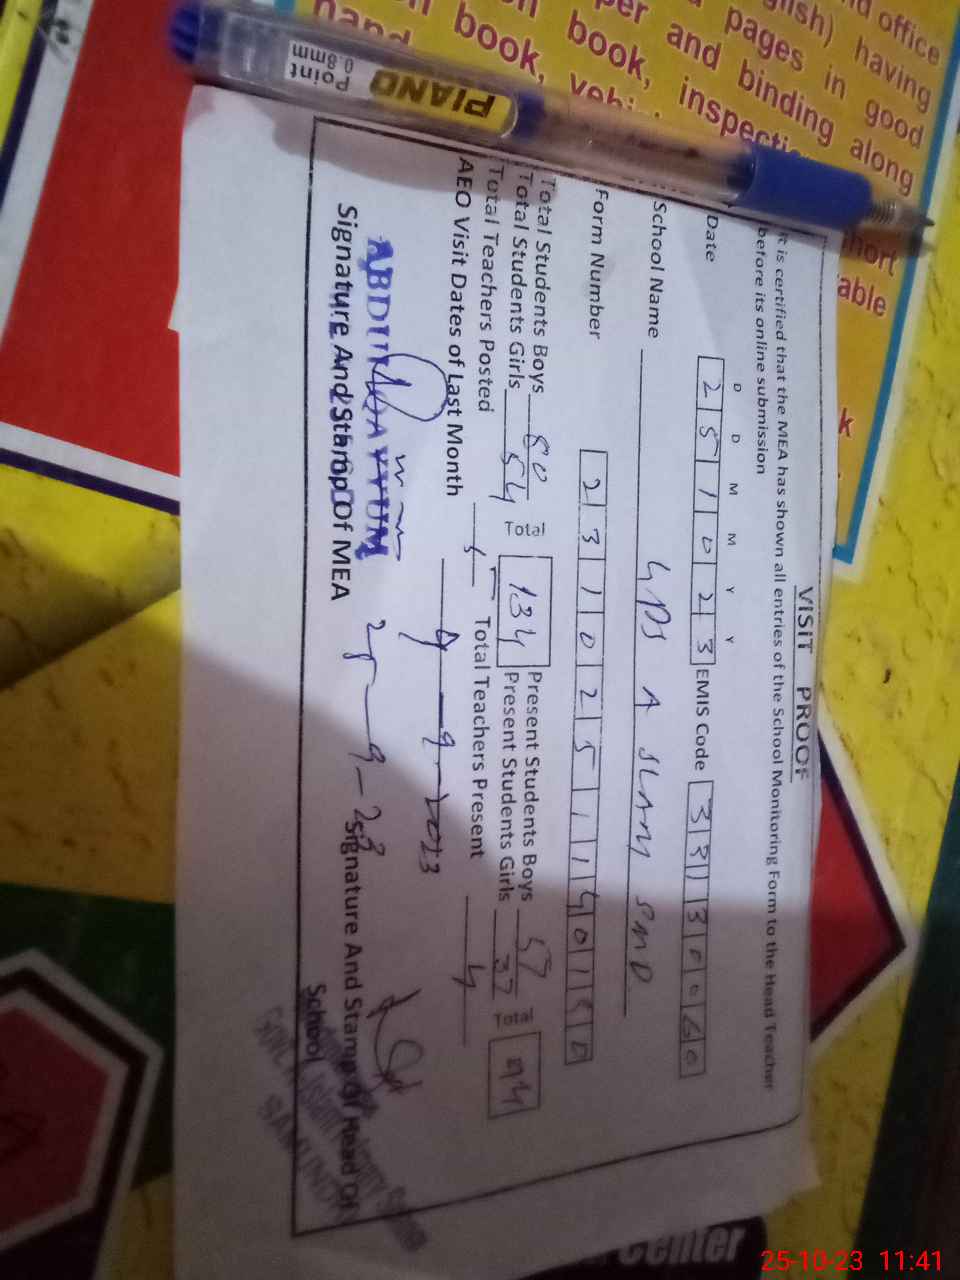 VISIT PROOF
It is certified that the MEA has shown all entries of the School Monitoring Form to the Head Teacher
before its online submission
D D M M Y Y
Date 2 5 1 0 2 3 EMIS Code 3 3 1 3 0 0 6 0
School Name GPS A SLAM SMD
Form Number 2 3 1 0 2 5 1 1 4 0 1
Total Students Boys 80 Total 134 Present Students Boys 57 Total 94
Total Students Girls 54 Present Students Girls 37
Total Teachers Posted Total Teachers Present 4
AEO Visit Dates of Last Month 9-2023
28-9-23
ABDUL QAYYUM
Signature And Stamp Of MEA
Signature And Stamp Of Head Of
School
PIANO
Point
0.8mm
nd office
glish) having
pages in good
per and binding along
book, inspecti
book, vehi
hand
hort
able
k
Center
25-10-23 11:41